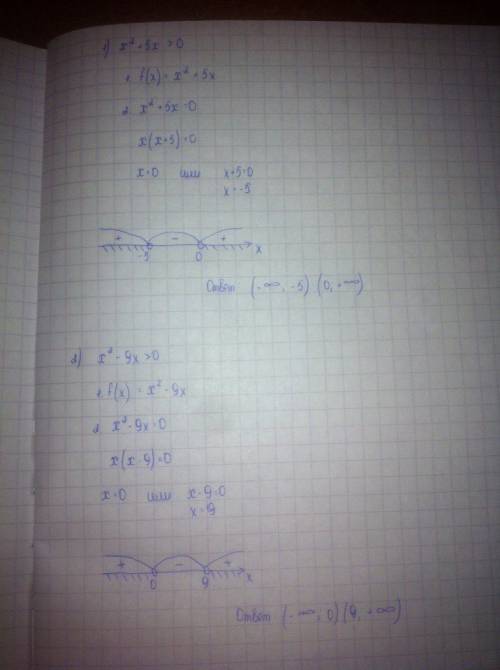 1) x² + 5x > 0
1. f(x) = x² + 5x
2. x² + 5x = 0
x(x+5) = 0
x=0 или x+5=0
x=-5
+ - +
-5 0 x
Ответ (-∞, -5) (0, +∞)
2) x² - 9x > 0
1. f(x) = x² - 9x
2. x² - 9x = 0
x(x-9) = 0
x=0 или x-9=0
x=9
+ - +
0 9 x
Ответ (-∞, 0) (9, +∞)